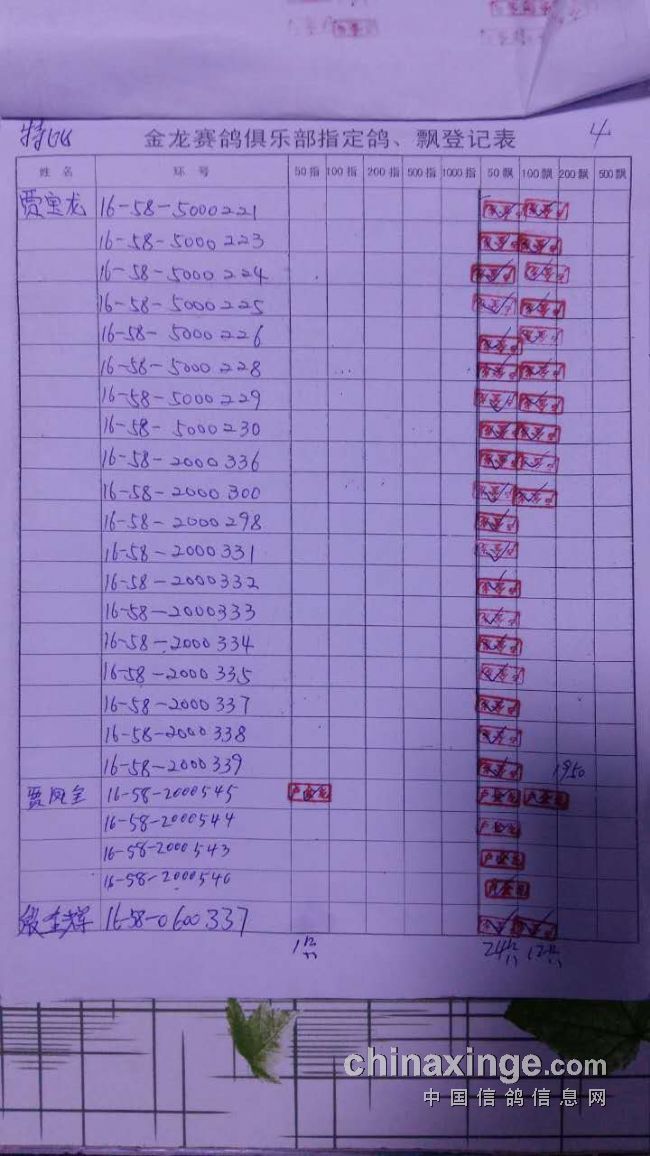 特比 4
金龙赛鸽俱乐部指定鸽、飘登记表
姓 名 环 号 50 指 100 指 200 指 500 指 1000 指 50 飘 100 飘 200 飘 500 飘
贾宝龙 16-58-5000221
16-58-5000223
16-58-5000224
16-58-5000225
16-58-5000226
16-58-5000228
16-58-5000229
16-58-5000230
16-58-2000336
16-58-2000300
16-58-2000298
16-58-2000331
16-58-2000332
16-58-2000333
16-58-2000334
16-58-2000335
16-58-2000337
16-58-2000338
16-58-2000339 1950
贾凤全 16-58-2000545
16-58-2000544
16-58-2000543
16-58-2000546
16-58-0600337
1 24 12
chinaxinge.com
中国信鸽信息网